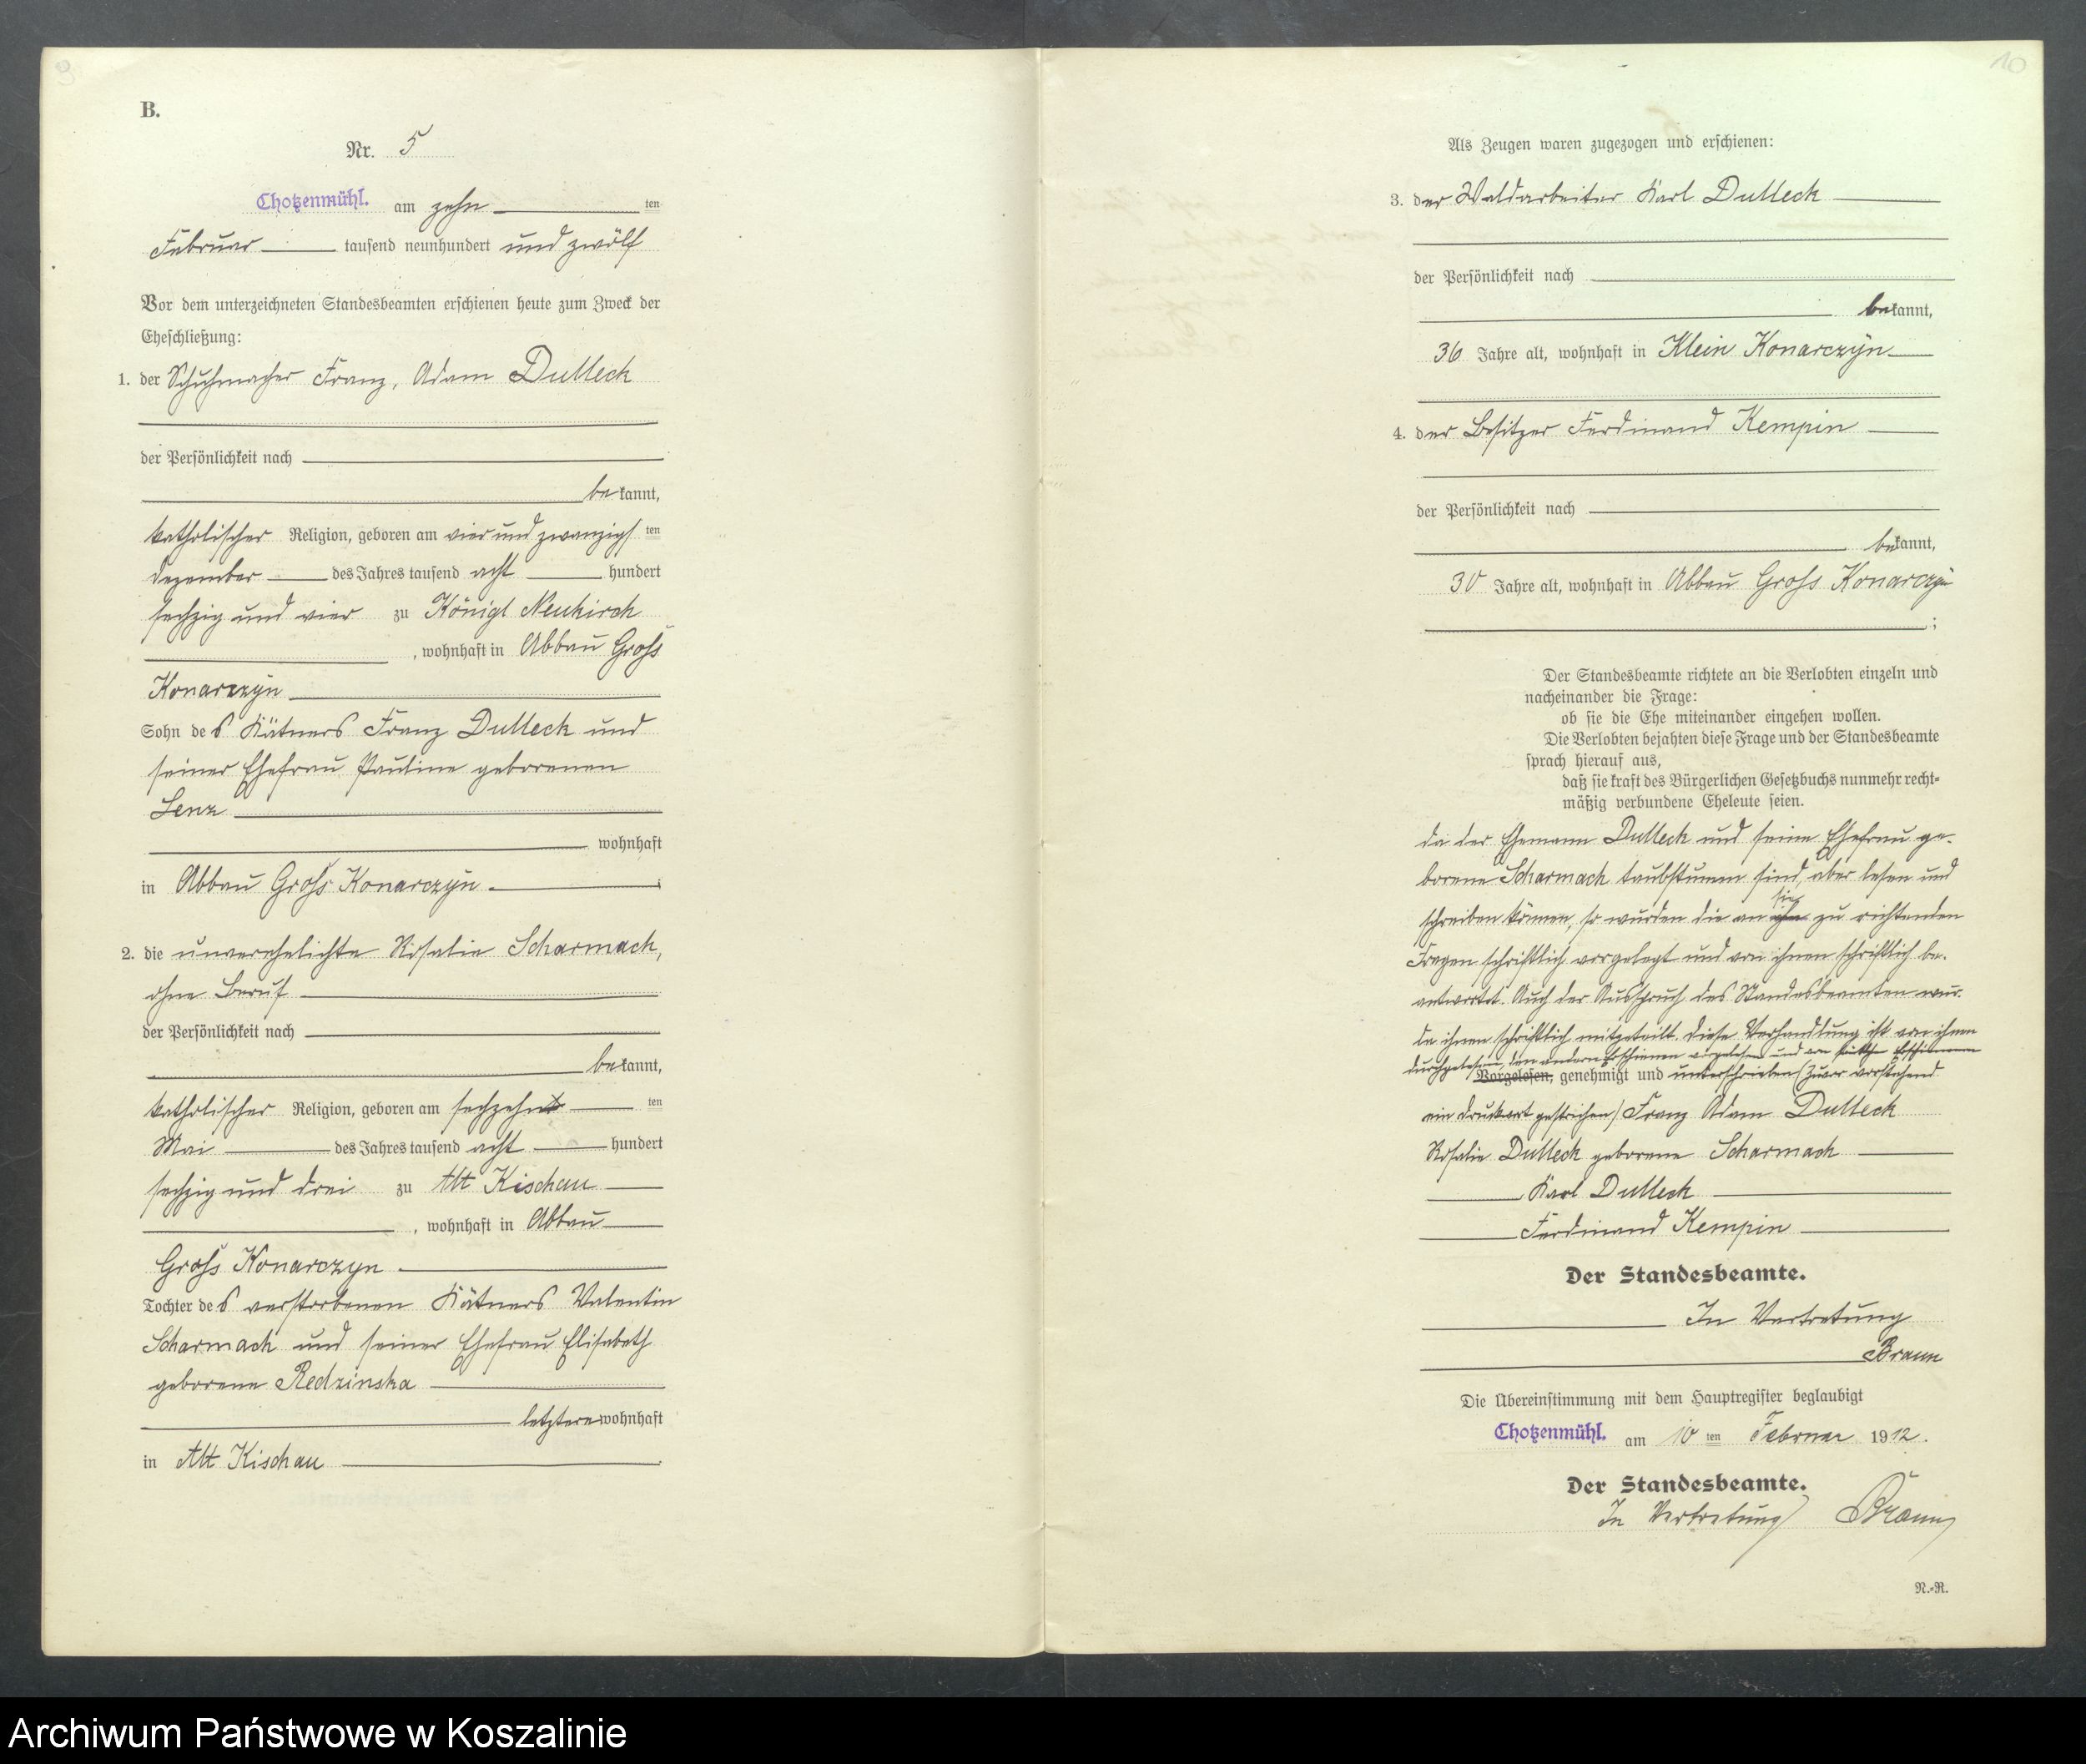 9
B.
Nr. 5
Chotzenmühl. am zehn ten
Februar tausend neunhundert und zwölf
Vor dem unterzeichneten Standesbeamten erschienen heute zum Zweck der
Eheschließung:
1. der Schuhmacher Franz, Adam Dulleck
der Persönlichkeit nach
be kannt,
katholischer Religion, geboren am vier und zwanzigs ten
Dezember des Jahres tausend acht hundert
sechzig und vier zu Königl Neukirch
, wohnhaft in Abbau Groß
Konarczyn
Sohn des Kätners Franz Dulleck und
seiner Ehefrau Pauline geborenen
Lenz
wohnhaft
in Abbau Groß Konarczyn ;
2. die unverehelichte Rosalie Scharmach,
ohne Beruf
der Persönlichkeit nach
be kannt,
katholischer Religion, geboren am sechzehn ten
Mai des Jahres tausend acht hundert
sechzig und drei zu Alt Kischau
, wohnhaft in Abbau
Groß Konarczyn
Tochter des verstorbenen Kätners Valentin
Scharmach und seiner Ehefrau Elisabeth
geborene Redzinska
letztere wohnhaft
in Alt Kischau .
10
Als Zeugen waren zugezogen und erschienen:
3. der Waldarbeiter Karl Dulleck
der Persönlichkeit nach
be kannt,
36 Jahre alt, wohnhaft in Klein Konarczyn
4. der Besitzer Ferdinand Kempin
der Persönlichkeit nach
be kannt,
30 Jahre alt, wohnhaft in Abbau Groß Konarczyn
;
Der Standesbeamte richtete an die Verlobten einzeln und
nacheinander die Frage:
ob sie die Ehe miteinander eingehen wollen.
Die Verlobten bejahten diese Frage und der Standesbeamte
sprach hierauf aus,
daß sie kraft des Bürgerlichen Gesetzbuchs nunmehr recht-
mäßig verbundene Eheleute seien.
da der Ehemann Dulleck und seine Ehefrau ge-
borene Scharmach taubstumm sind, aber lesen und
schreiben können, so wurden die an sie zu richtenden
Fragen schriftlich vorgelegt und von ihnen schriftlich be-
antwortet. Auch der Ausspruch des Standesbeamten wur-
de ihnen schriftlich mitgeteilt. Diese Verhandlung ist von ihnen
durchgelesen, den andern Erschienen vorgelesen und von Erschienenen
Vorgelesen, genehmigt und unterschrieben (Zuvor vorstehend
ein Druckwort gestrichen) Franz Adam Dulleck
Rosalie Dulleck geborene Scharmach
Karl Dulleck
Ferdinand Kempin
Der Standesbeamte.
In Vertretung
Braun
Die Übereinstimmung mit dem Hauptregister beglaubigt
Chotzenmühl. am 10 ten Februar 1912.
Der Standesbeamte.
In Vertretung Braun
N.-R.
Archiwum Państwowe w Koszalinie